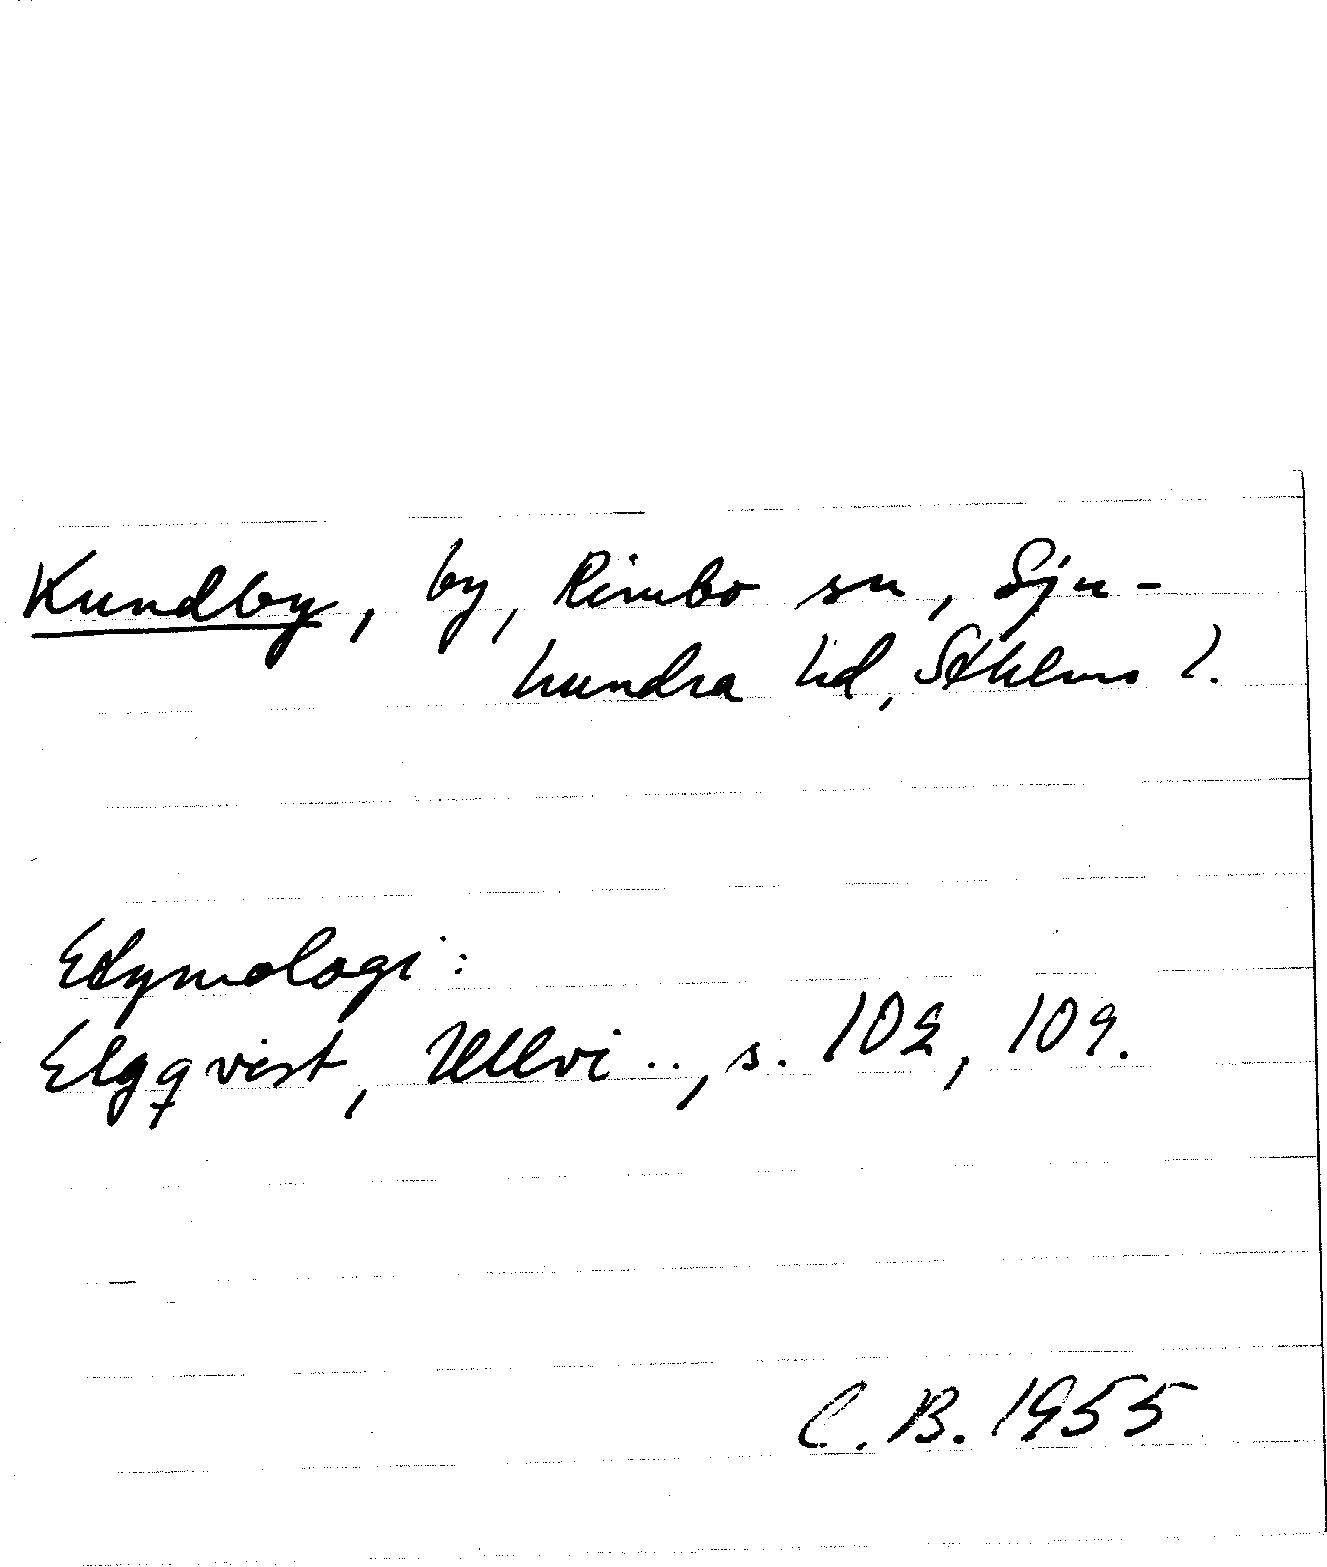 Kundby, by, Rimbo sn, Sju-
hundra hd, Sthlms l.
Etymologi:
Elgqvist, Ullvi.., s. 102, 109.
C. B. 1955